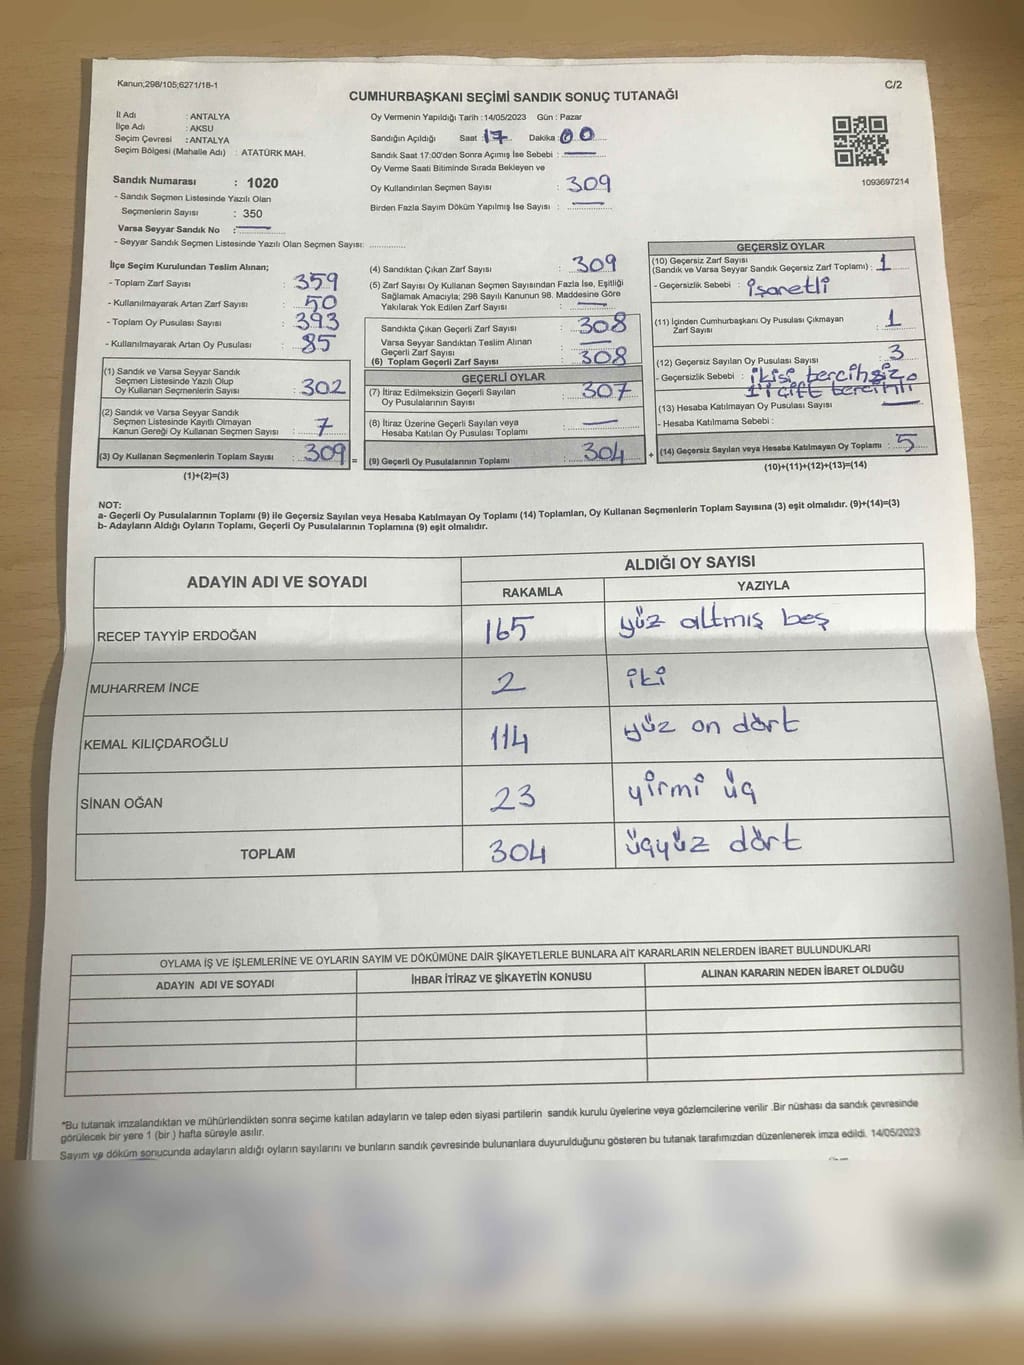 Kanun;298/105;6271/18-1
C/2
CUMHURBAŞKANI SEÇİMİ SANDIK SONUÇ TUTANAĞI
İl Adı : ANTALYA
İlçe Adı : AKSU
Seçim Çevresi : ANTALYA
Seçim Bölgesi (Mahalle Adı) : ATATÜRK MAH.
Sandık Numarası : 1020
- Sandık Seçmen Listesinde Yazılı Olan
Seçmenlerin Sayısı : 350
Varsa Seyyar Sandık No : —
- Seyyar Sandık Seçmen Listesinde Yazılı Olan Seçmen Sayısı: ...............
Oy Vermenin Yapıldığı Tarih : 14/05/2023 Gün : Pazar
Sandığın Açıldığı Saat : 17 Dakika : 00
Sandık Saat 17:00'den Sonra Açımış İse Sebebi : —
Oy Verme Saati Bitiminde Sırada Bekleyen ve
Oy Kullandırılan Seçmen Sayısı : 309
Birden Fazla Sayım Döküm Yapılmış İse Sayısı : —
1093697214
İlçe Seçim Kurulundan Teslim Alınan;
- Toplam Zarf Sayısı : 359
- Kullanılmayarak Artan Zarf Sayısı : 50
- Toplam Oy Pusulası Sayısı : 393
- Kullanılmayarak Artan Oy Pusulası : 85
(1) Sandık ve Varsa Seyyar Sandık
Seçmen Listesinde Yazılı Olup
Oy Kullanan Seçmenlerin Sayısı : 302
(2) Sandık ve Varsa Seyyar Sandık
Seçmen Listesinde Kayıtlı Olmayan
Kanun Gereği Oy Kullanan Seçmen Sayısı : 7
(3) Oy Kullanan Seçmenlerin Toplam Sayısı : 309
(1)+(2)=(3)
=
(4) Sandıktan Çıkan Zarf Sayısı : 309
(5) Zarf Sayısı Oy Kullanan Seçmen Sayısından Fazla İse, Eşitliği
Sağlamak Amacıyla; 298 Sayılı Kanunun 98. Maddesine Göre
Yakılarak Yok Edilen Zarf Sayısı : —
Sandıkta Çıkan Geçerli Zarf Sayısı : 308
Varsa Seyyar Sandıktan Teslim Alınan
Geçerli Zarf Sayısı : —
(6) Toplam Geçerli Zarf Sayısı : 308
GEÇERLİ OYLAR
(7) İtiraz Edilmeksizin Geçerli Sayılan
Oy Pusulalarının Sayısı : 307
(8) İtiraz Üzerine Geçerli Sayılan veya
Hesaba Katılan Oy Pusulası Toplamı : —
(9) Geçerli Oy Pusulalarının Toplamı : 304
+
GEÇERSİZ OYLAR
(10) Geçersiz Zarf Sayısı
(Sandık ve Varsa Seyyar Sandık Geçersiz Zarf Toplamı) : 1
- Geçersizlik Sebebi : işaretli
(11) İçinden Cumhurbaşkanı Oy Pusulası Çıkmayan
Zarf Sayısı : 1
(12) Geçersiz Sayılan Oy Pusulası Sayısı : 3
- Geçersizlik Sebebi : ikisi tercihsiz
1'i çift tercihli
(13) Hesaba Katılmayan Oy Pusulası Sayısı : —
- Hesaba Katılmama Sebebi :
(14) Geçersiz Sayılan veya Hesaba Katılmayan Oy Toplamı : 5
(10)+(11)+(12)+(13)=(14)
NOT:
a- Geçerli Oy Pusulalarının Toplamı (9) ile Geçersiz Sayılan veya Hesaba Katılmayan Oy Toplamı (14) Toplamları, Oy Kullanan Seçmenlerin Toplam Sayısına (3) eşit olmalıdır. (9)+(14)=(3)
b- Adayların Aldığı Oyların Toplamı, Geçerli Oy Pusulalarının Toplamına (9) eşit olmalıdır.
ADAYIN ADI VE SOYADI
ALDIĞI OY SAYISI
RAKAMLA YAZIYLA
RECEP TAYYİP ERDOĞAN 165 yüz altmış beş
MUHARREM İNCE 2 iki
KEMAL KILIÇDAROĞLU 114 yüz on dört
SİNAN OĞAN 23 yirmi üç
TOPLAM 304 üçyüz dört
OYLAMA İŞ VE İŞLEMLERİNE VE OYLARIN SAYIM VE DÖKÜMÜNE DAİR ŞİKAYETLERLE BUNLARA AİT KARARLARIN NELERDEN İBARET BULUNDUKLARI
ADAYIN ADI VE SOYADI İHBAR İTİRAZ VE ŞİKAYETİN KONUSU ALINAN KARARIN NEDEN İBARET OLDUĞU
*Bu tutanak imzalandıktan ve mühürlendikten sonra seçime katılan adayların ve talep eden siyasi partilerin sandık kurulu üyelerine veya gözlemcilerine verilir .Bir nüshası da sandık çevresinde
görülecek bir yere 1 (bir ) hafta süreyle asılır.
Sayım ve döküm sonucunda adayların aldığı oyların sayılarını ve bunların sandık çevresinde bulunanlara duyurulduğunu gösteren bu tutanak tarafımızdan düzenlenerek imza edildi. 14/05/2023